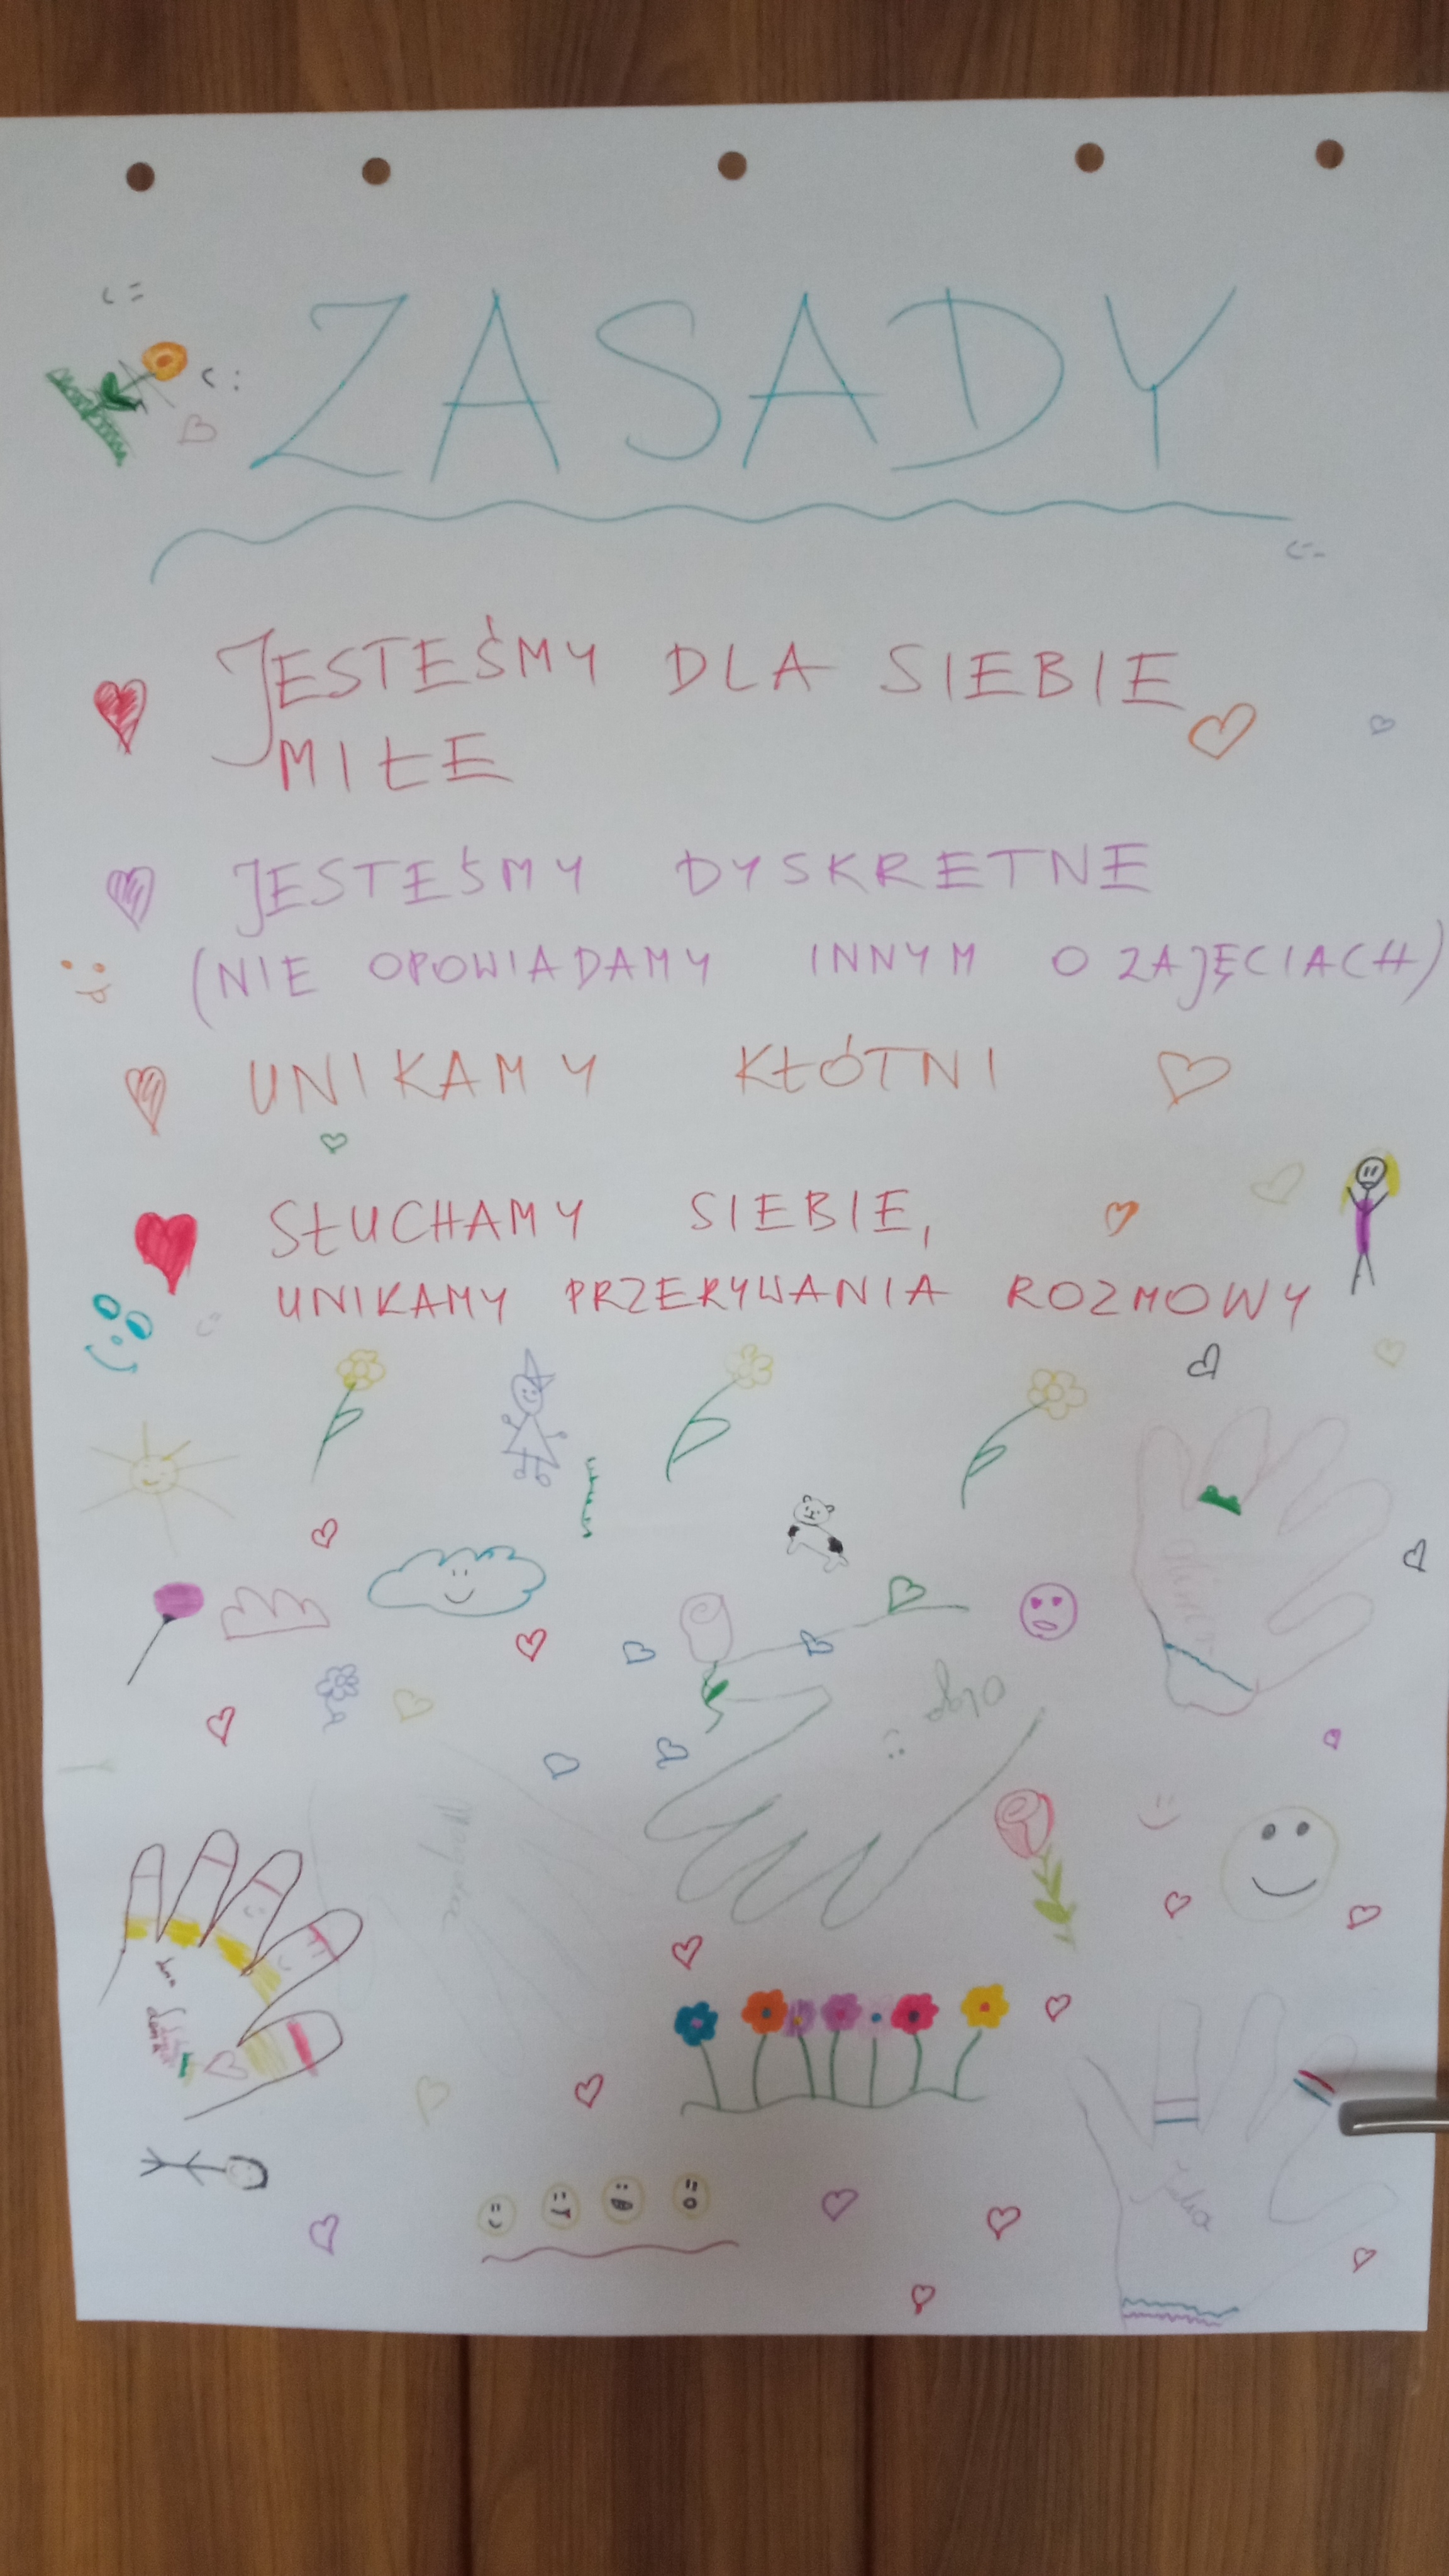 ZASADY
JESTEŚMY DLA SIEBIE
MIŁE
JESTEŚMY DYSKRETNE
(NIE OPOWIADAMY INNYM O ZAJĘCIACH)
UNIKAMY KŁÓTNI
SŁUCHAMY SIEBIE,
UNIKAMY PRZERYWANIA ROZMOWY
Olga
Julia